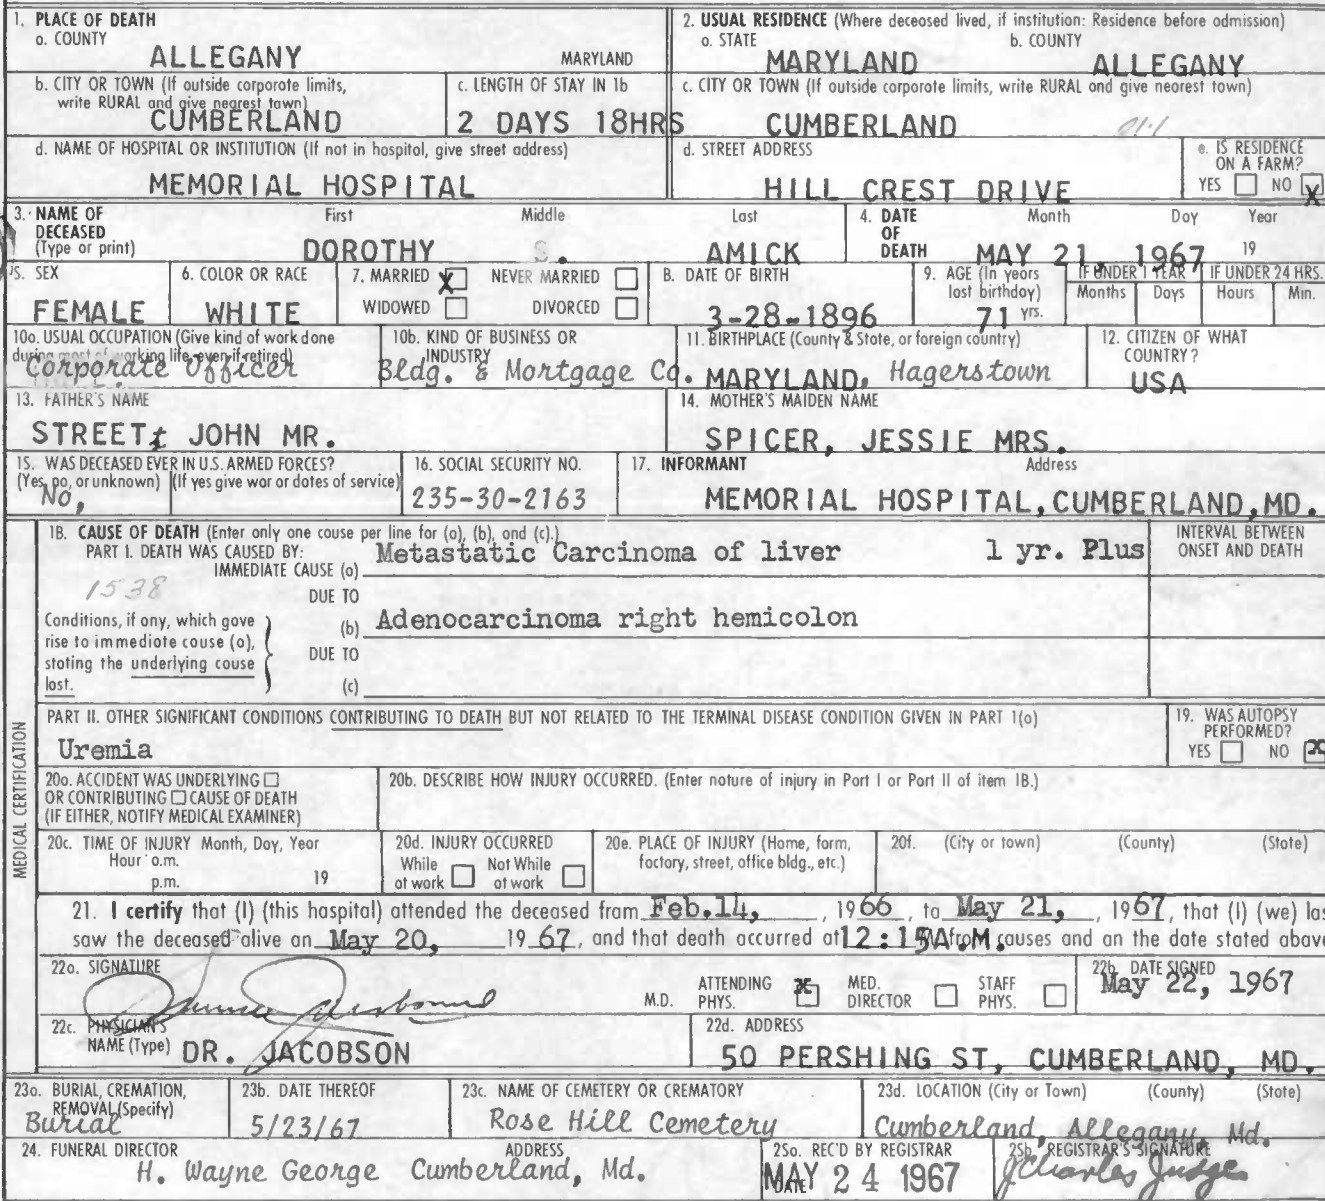 1. PLACE OF DEATH
a. COUNTY
ALLEGANY MARYLAND
2. USUAL RESIDENCE (Where deceased lived, if institution: Residence before admission)
a. STATE b. COUNTY
MARYLAND ALLEGANY
b. CITY OR TOWN (If outside corporate limits,
write RURAL and give nearest town)
CUMBERLAND
c. LENGTH OF STAY IN 1b
2 DAYS 18HRS
c. CITY OR TOWN (If outside corporate limits, write RURAL and give nearest town)
CUMBERLAND
d. NAME OF HOSPITAL OR INSTITUTION (If not in hospital, give street address)
MEMORIAL HOSPITAL
d. STREET ADDRESS
HILL CREST DRIVE
e. IS RESIDENCE
ON A FARM?
YES NO X
3. NAME OF
DECEASED
(Type or print)
First Middle Last
DOROTHY S. AMICK
4. DATE
OF
DEATH
Month Day Year
MAY 21, 1967 19
5. SEX
FEMALE
6. COLOR OR RACE
WHITE
7. MARRIED X NEVER MARRIED
WIDOWED DIVORCED
8. DATE OF BIRTH
3-28-1896
9. AGE (In years
last birthday)
71 yrs.
IF UNDER 1 YEAR
Months Days
IF UNDER 24 HRS.
Hours Min.
10a. USUAL OCCUPATION (Give kind of work done
during most of working life, even if retired)
Corporate Officer
10b. KIND OF BUSINESS OR
INDUSTRY
Bldg. & Mortgage Co.
11. BIRTHPLACE (County & State, or foreign country)
MARYLAND, Hagerstown
12. CITIZEN OF WHAT
COUNTRY?
USA
13. FATHER'S NAME
STREET, JOHN MR.
14. MOTHER'S MAIDEN NAME
SPICER, JESSIE MRS.
15. WAS DECEASED EVER IN U.S. ARMED FORCES?
(Yes, no, or unknown) (If yes give war or dates of service)
No,
16. SOCIAL SECURITY NO.
235-30-2163
17. INFORMANT Address
MEMORIAL HOSPITAL, CUMBERLAND, MD.
18. CAUSE OF DEATH (Enter only one cause per line for (a), (b), and (c).)
PART I. DEATH WAS CAUSED BY:
IMMEDIATE CAUSE (a) Metastatic Carcinoma of liver 1 yr. Plus
INTERVAL BETWEEN
ONSET AND DEATH
1538
DUE TO
(b) Adenocarcinoma right hemicolon
Conditions, if any, which gave
rise to immediate cause (a),
stating the underlying cause
last.
DUE TO
(c)
MEDICAL CERTIFICATION
PART II. OTHER SIGNIFICANT CONDITIONS CONTRIBUTING TO DEATH BUT NOT RELATED TO THE TERMINAL DISEASE CONDITION GIVEN IN PART 1(a)
Uremia
19. WAS AUTOPSY
PERFORMED?
YES NO X
20a. ACCIDENT WAS UNDERLYING
OR CONTRIBUTING CAUSE OF DEATH
(IF EITHER, NOTIFY MEDICAL EXAMINER)
20b. DESCRIBE HOW INJURY OCCURRED. (Enter nature of injury in Part I or Part II of item 18.)
20c. TIME OF INJURY Month, Day, Year
Hour a.m.
p.m. 19
20d. INJURY OCCURRED
While Not While
at work at work
20e. PLACE OF INJURY (Home, farm,
factory, street, office bldg., etc.)
20f. (City or town) (County) (State)
21. I certify that (I) (this hospital) attended the deceased from Feb.14, 1966, to May 21, 1967, that (I) (we) las
saw the deceased alive on May 20, 1967, and that death occurred at 12:15 A.M. from causes and on the date stated above
22a. SIGNATURE
M.D. ATTENDING
PHYS. X MED.
DIRECTOR STAFF
PHYS.
22b. DATE SIGNED
May 22, 1967
22c. PHYSICIAN'S
NAME (Type) DR. JACOBSON
22d. ADDRESS
50 PERSHING ST, CUMBERLAND, MD.
23a. BURIAL, CREMATION,
REMOVAL (Specify)
Burial
23b. DATE THEREOF
5/23/67
23c. NAME OF CEMETERY OR CREMATORY
Rose Hill Cemetery
23d. LOCATION (City or Town) (County) (State)
Cumberland, Allegany, Md.
24. FUNERAL DIRECTOR ADDRESS
H. Wayne George Cumberland, Md.
25a. REC'D BY REGISTRAR
DATE
MAY 24 1967
25b. REGISTRAR'S SIGNATURE
J Charles Judge